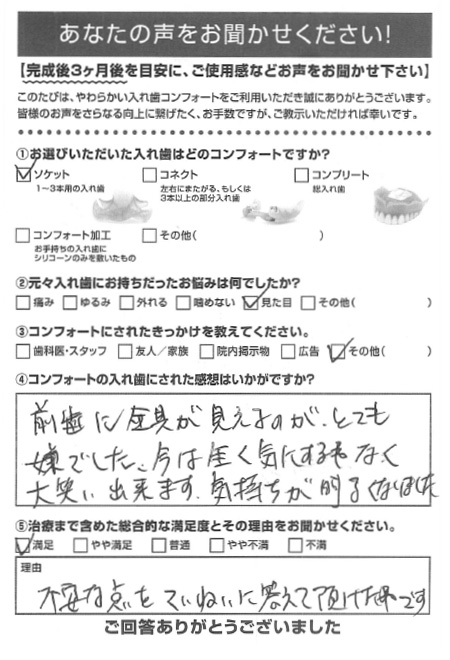 あなたの声をお聞かせください!
【完成後3ヶ月後を目安に、ご使用感などお声をお聞かせ下さい】
このたびは、やわらかい入れ歯コンフォートをご利用いただき誠にありがとうございます。
皆様のお声をさらなる向上に繋げたく、お手数ですが、ご教示いただければ幸いです。
①お選びいただいた入れ歯はどのコンフォートですか?
ソケット コネクト コンプリート
1~3本用の入れ歯 左右にまたがる、もしくは 総入れ歯
3本以上の部分入れ歯
コンフォート加工 その他( )
お手持ちの入れ歯に
シリコーンのみを敷いたもの
②元々入れ歯にお持ちだったお悩みは何でしたか?
痛み ゆるみ 外れる 噛めない 見た目 その他( )
③コンフォートにされたきっかけを教えてください。
歯科医・スタッフ 友人/家族 院内掲示物 広告 その他( )
④コンフォートの入れ歯にされた感想はいかがですか?
前歯に金具が見えるのが、とても
嫌でした。今は全く気にする事なく
大笑い出来ます。気持ちが明るくなりました
⑤治療まで含めた総合的な満足度とその理由をお聞かせください。
満足 やや満足 普通 やや不満 不満
理由
不安な点をていねいに答えて頂けた事です
ご回答ありがとうございました